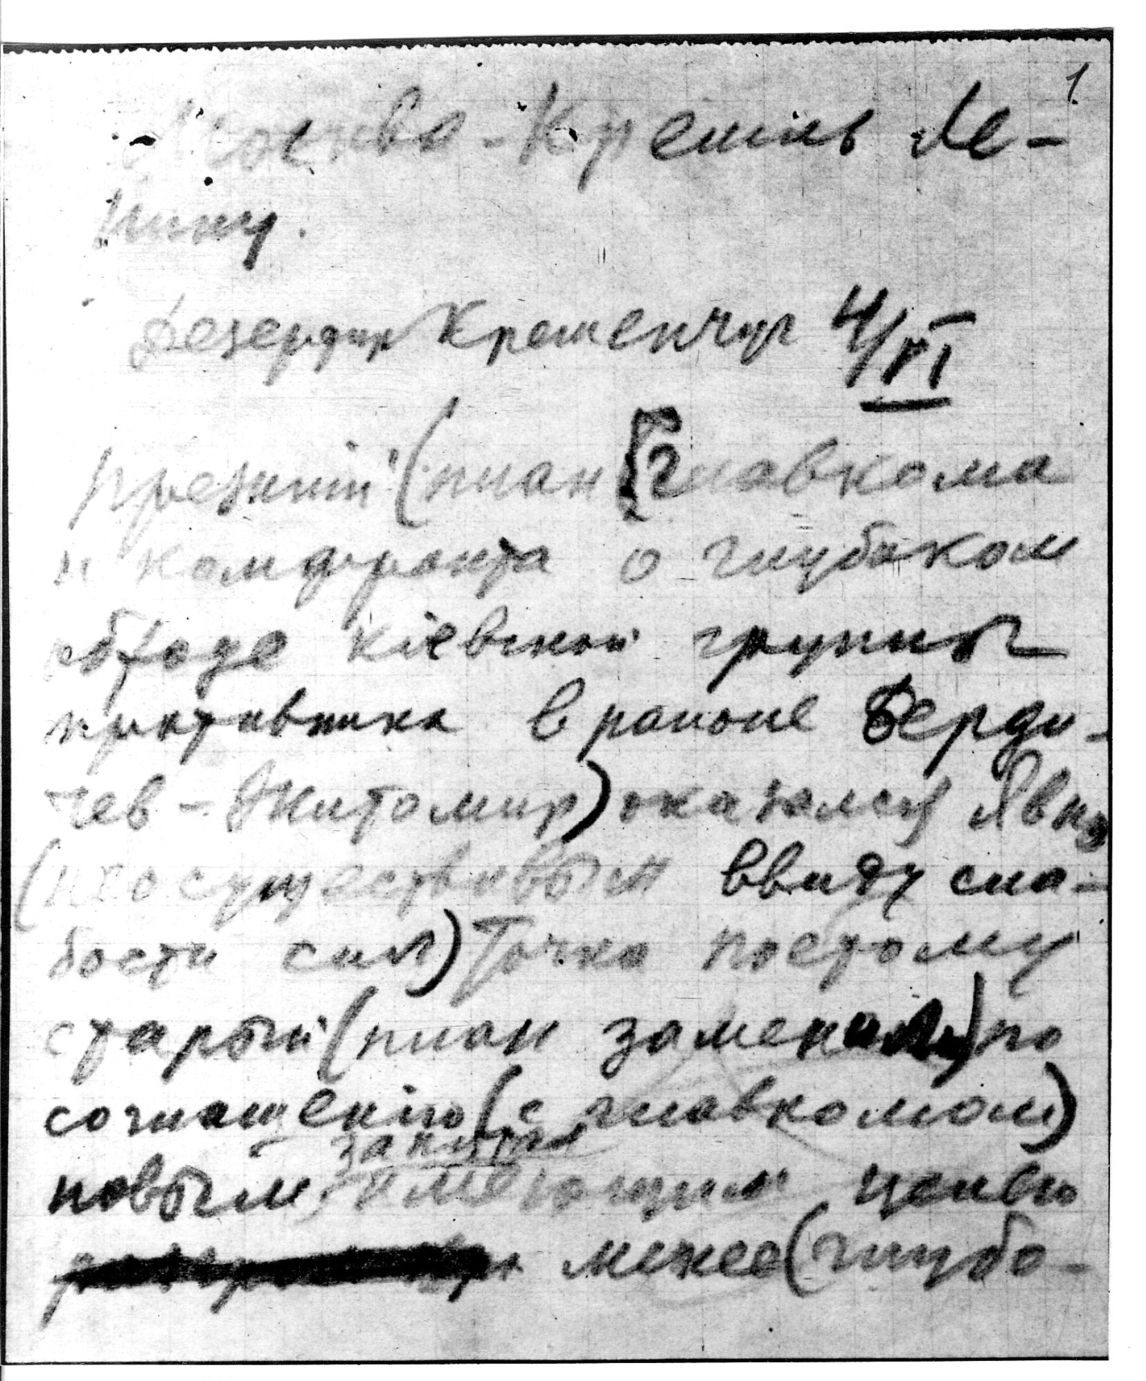 1
Москва-Кремль Ле-
нину.
Кременчуг 4/VI
Прежний (план главкома
и комфронта о глубоком
обходе кіевской группы
противника в районе Берди-
чев-Житомир) оказался явно
(неосуществивым ввиду сла-
бости сил) Точка поэтому
старый (план заменили) по
соглашенію (с главкомом)
запятая
новым, имеющим целью
менее (глубо-